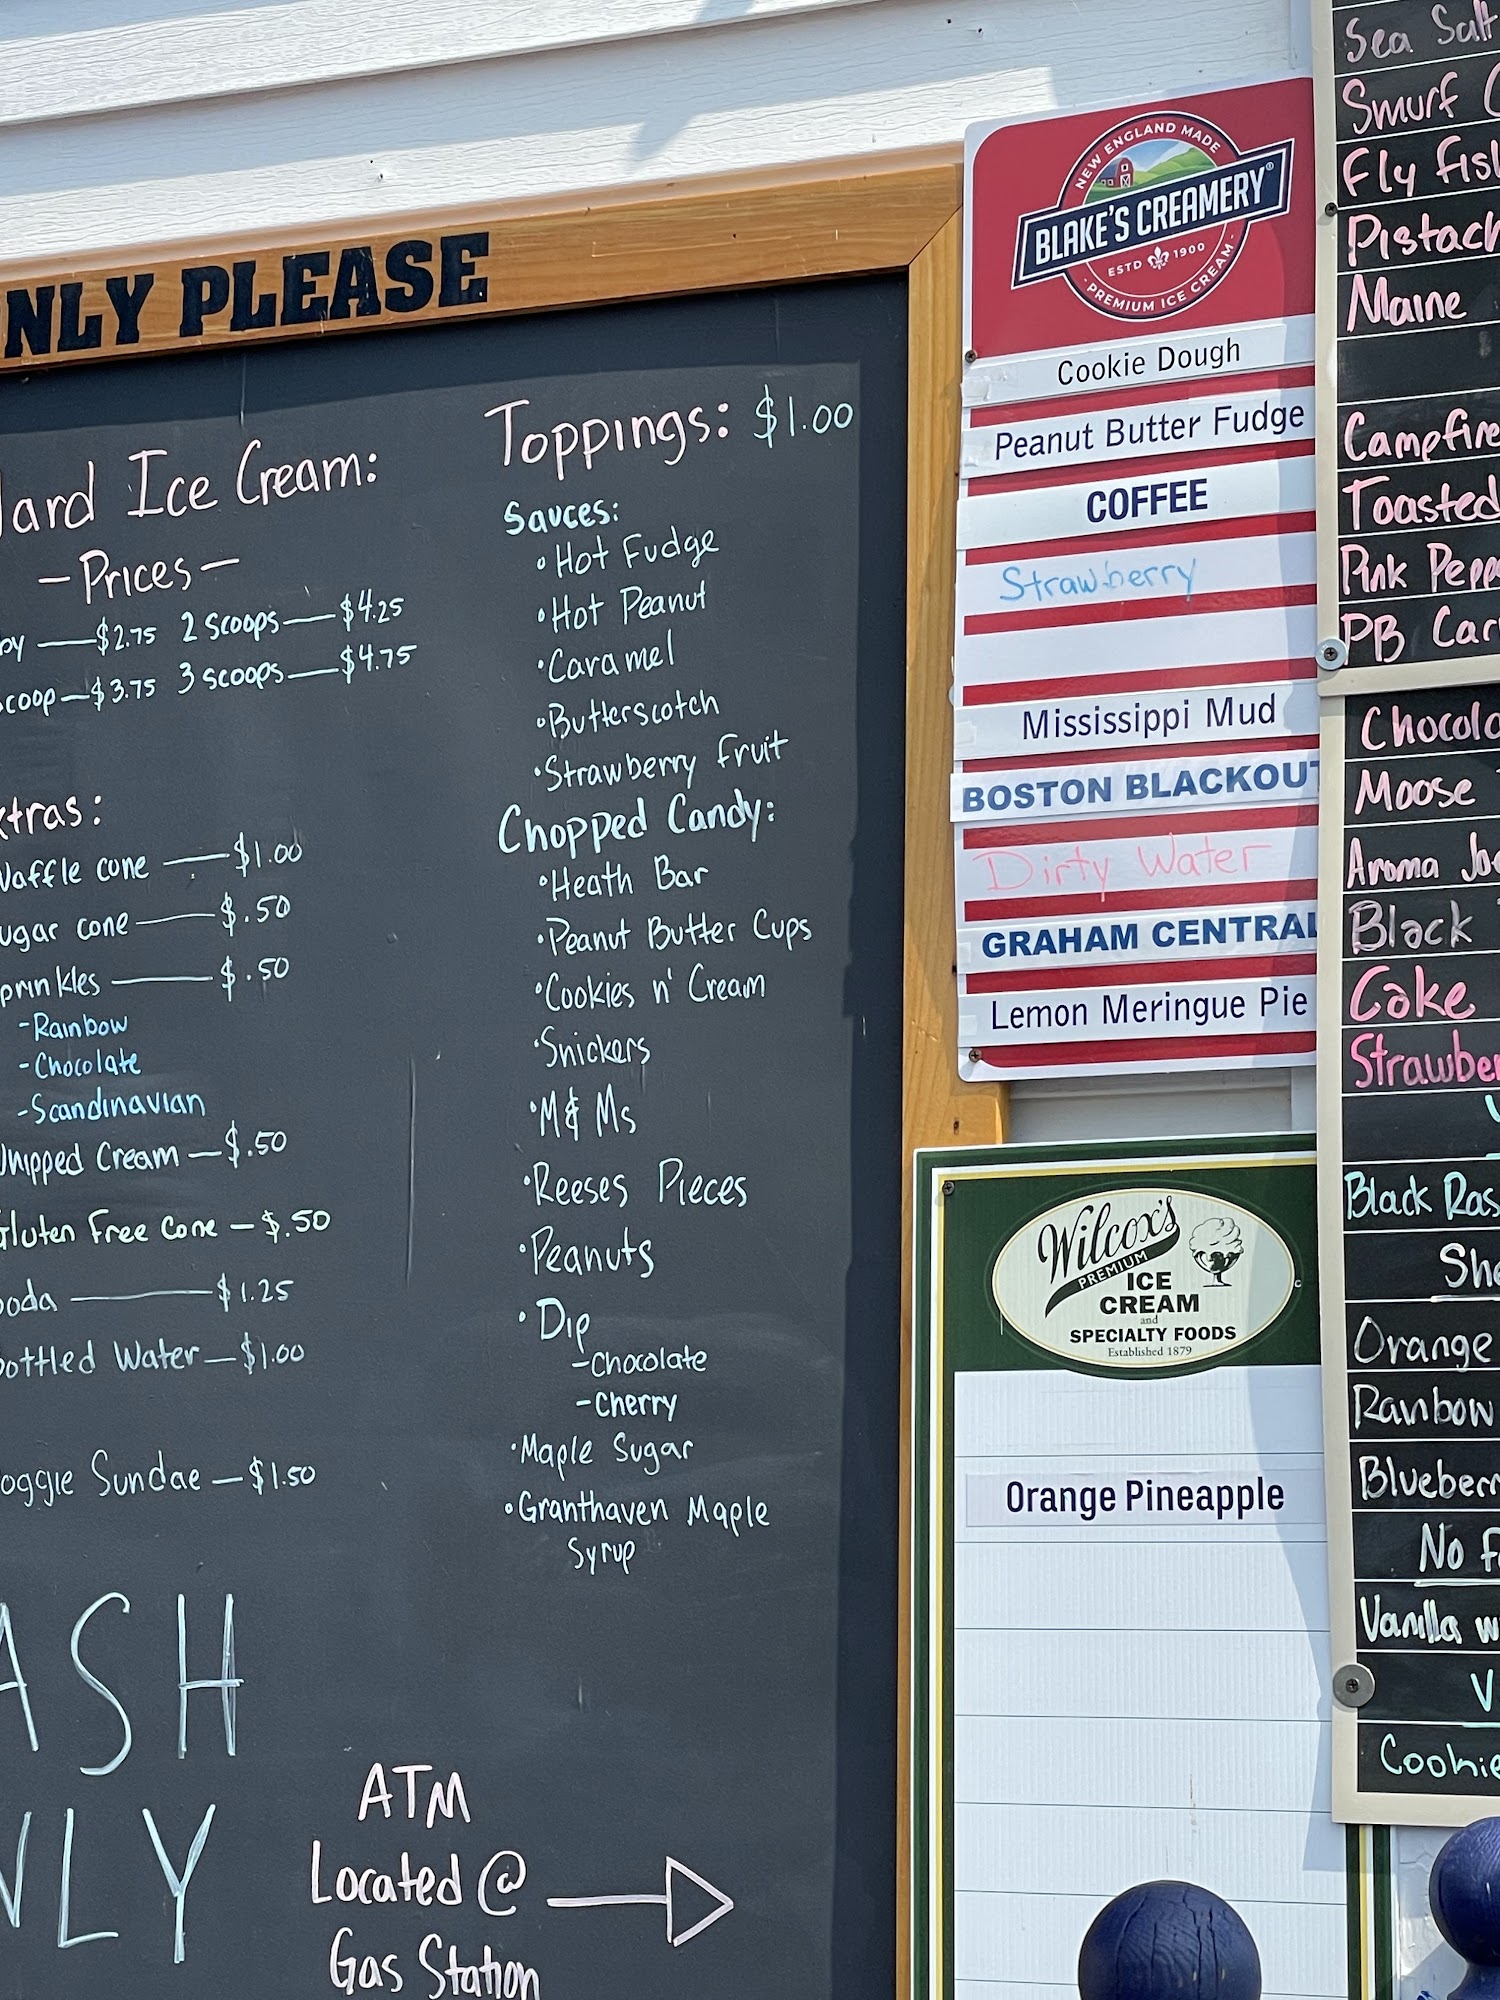 NLY PLEASE
Hard Ice Cream:
- Prices -
by — $2.75 2 scoops — $4.25
scoop — $3.75 3 scoops — $4.75
xtras:
Waffle cone — $1.00
ugar cone — $.50
prinkles — $.50
- Rainbow
- Chocolate
- Scandinavian
Whipped Cream — $.50
Gluten Free Cone — $.50
oda — $1.25
ottled Water — $1.00
oggie Sundae — $1.50
ASH
NLY
ATM
Located @
Gas Station
Toppings: $1.00
Sauces:
• Hot Fudge
• Hot Peanut
• Caramel
• Butterscotch
• Strawberry Fruit
Chopped Candy:
• Heath Bar
• Peanut Butter Cups
• Cookies n' Cream
• Snickers
• M & Ms
• Reeses Pieces
• Peanuts
• Dip
- Chocolate
- Cherry
• Maple Sugar
• Granthaven Maple
Syrup
NEW ENGLAND MADE
BLAKE'S CREAMERY®
ESTD 1900
· PREMIUM ICE CREAM ·
Cookie Dough
Peanut Butter Fudge
COFFEE
Strawberry
Mississippi Mud
BOSTON BLACKOUT
Dirty Water
GRAHAM CENTRAL
Lemon Meringue Pie
Wilcox's
PREMIUM
ICE
CREAM
and
SPECIALTY FOODS
Established 1879
Orange Pineapple
Sea Salt
Smurf C
Fly Fis
Pistach
Maine
Campfire
Toasted
Pink Pepp
PB Car
Chocola
Moose
Aroma Jo
Black
Cake
Strawber
Black Ras
She
Orange
Rainbow
Blueberr
No F
Vanilla w
V
Cookie